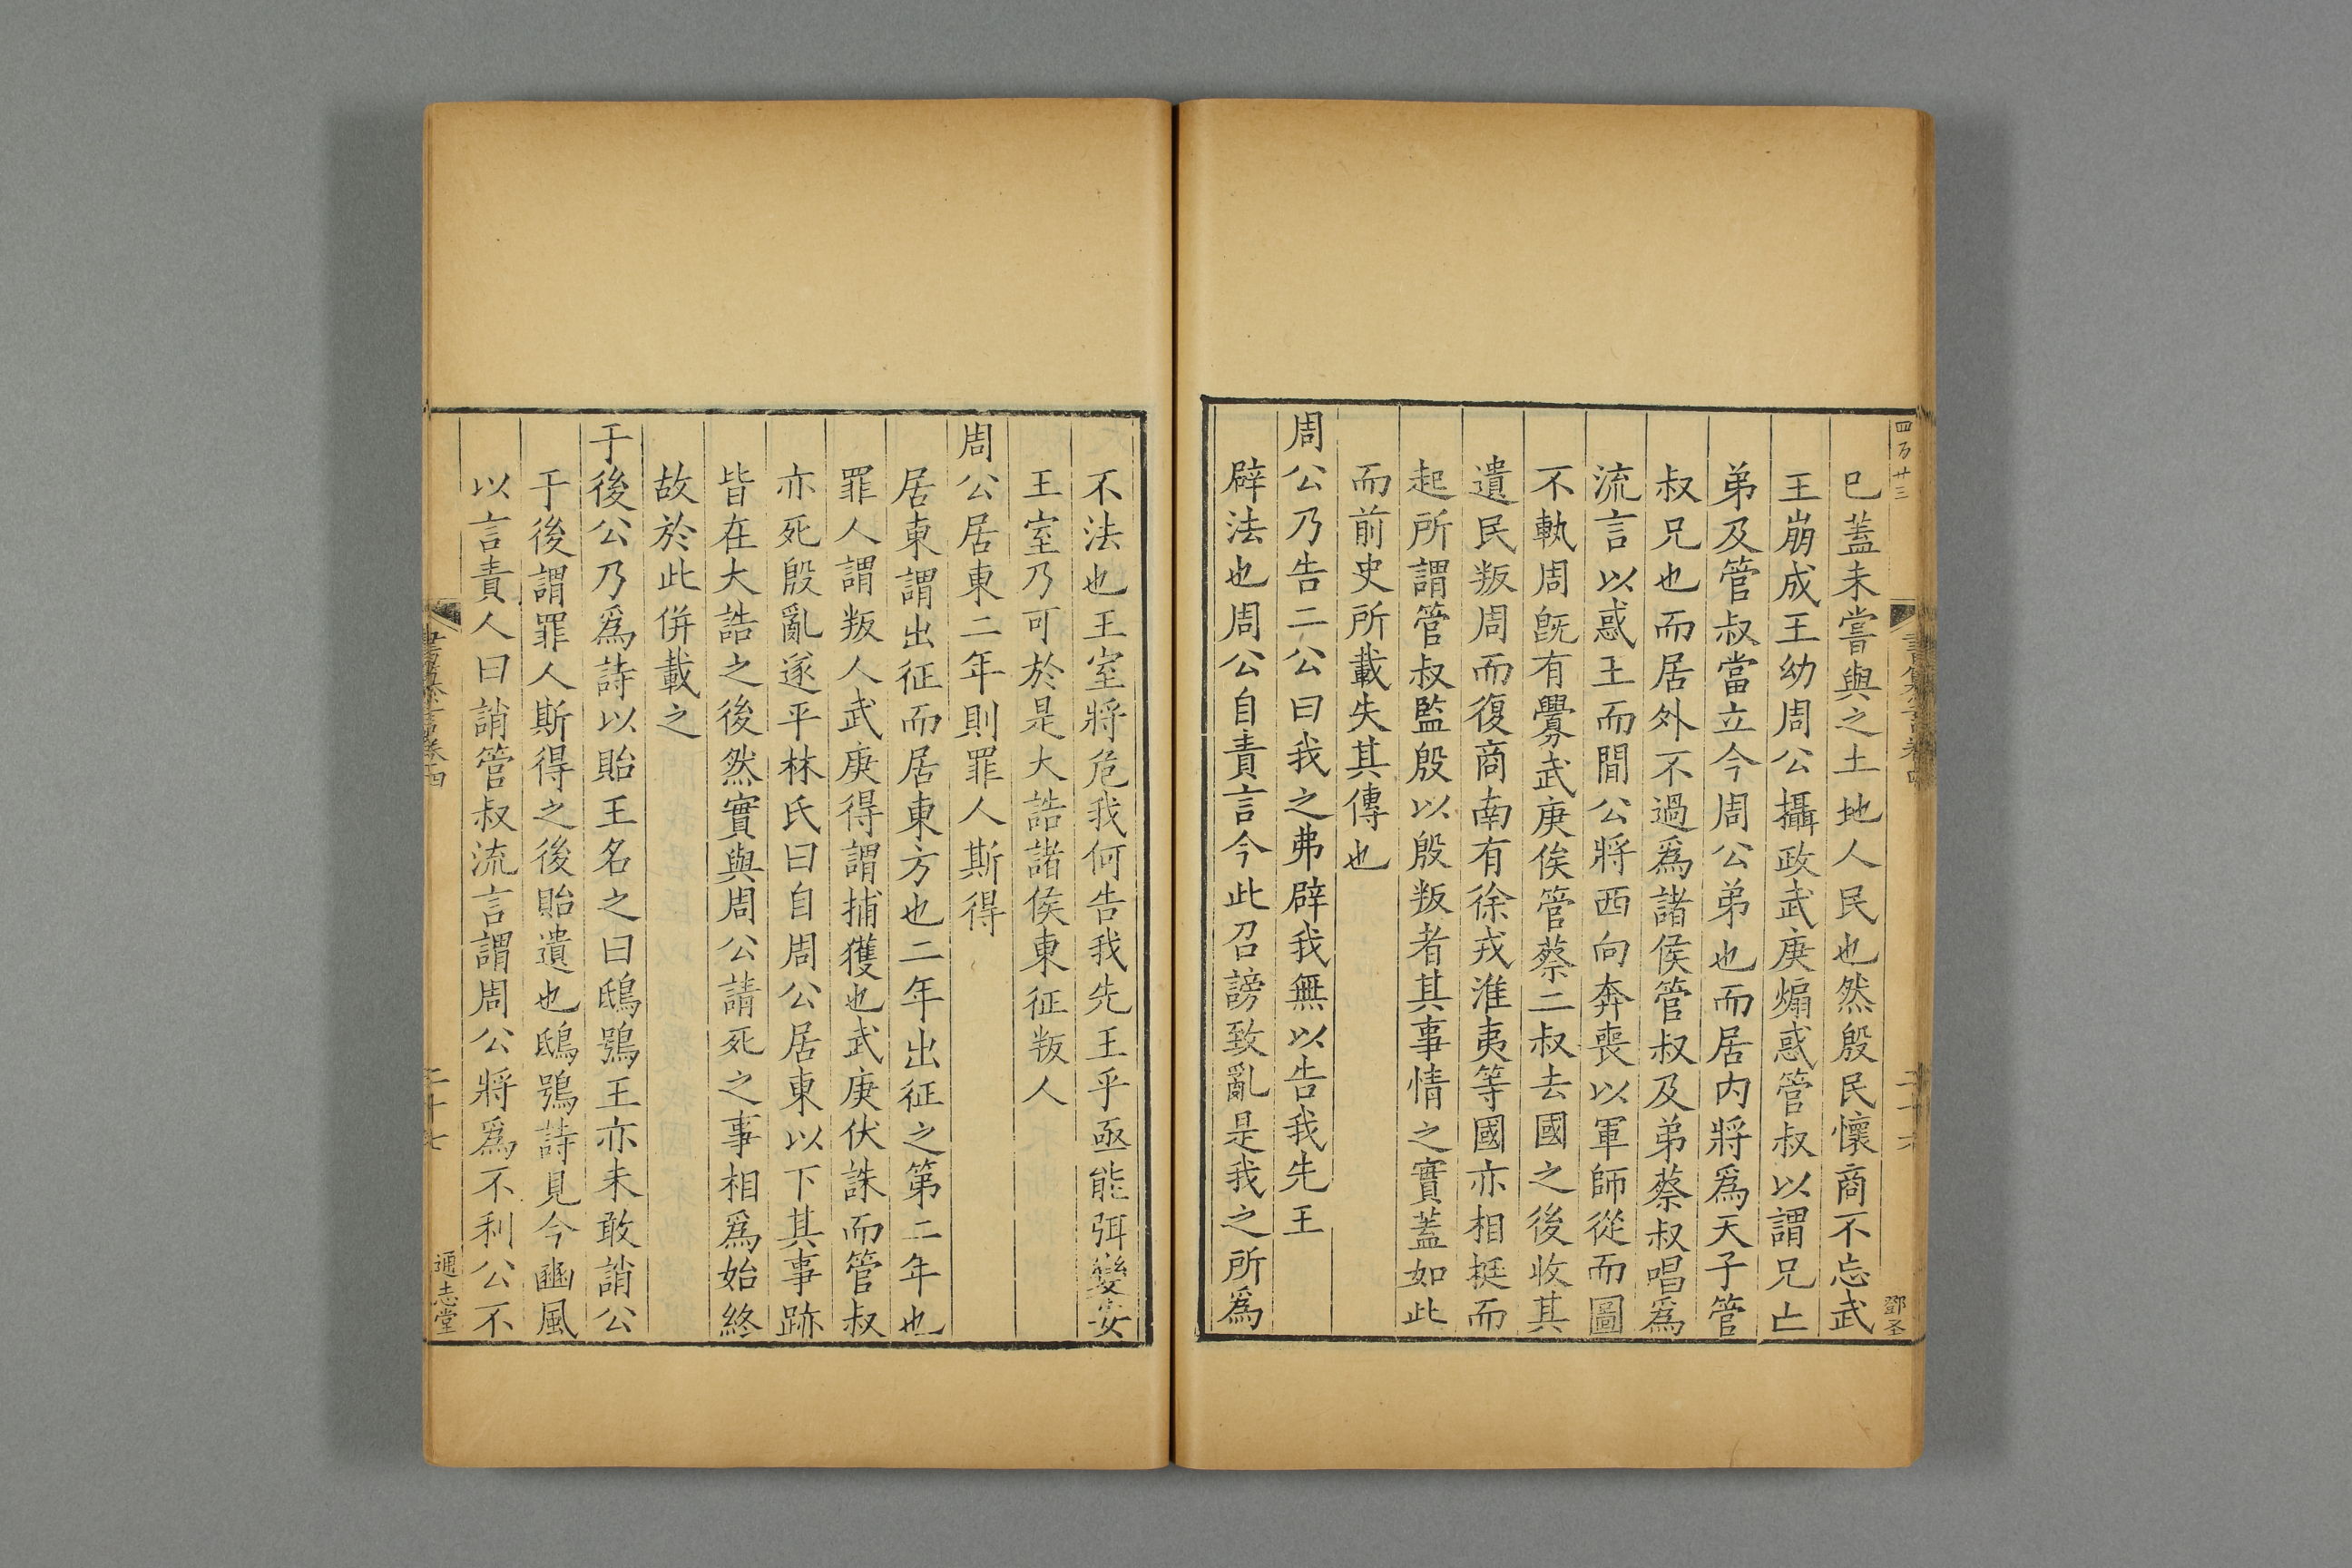 四百廿三
巳蓋未嘗與之土地人民也然殷民懷商不忘武
王崩成王幼周公攝政武庚煽惑管叔以謂兄亡
弟及管叔當立今周公弟也而居内將爲天子管
叔兄也而居外不過爲諸侯管叔及弟蔡叔唱爲
流言以惑王而閒公將西向奔喪以軍師從而圖
不軌周旣有釁武庚俟管蔡二叔去國之後收其
遺民叛周而復商南有徐戎淮夷等國亦相挻而
起所謂管叔監殷以殷叛者其事情之實蓋如此
而前史所載失其傳也
周公乃告二公曰我之弗辟我無以告我先王
辟法也周公自責言今此召謗致亂是我之所爲
鄧圣
二十六
不法也王室將危我何告我先王乎亟能弭變安
王室乃可於是大誥諸侯東征叛人
周公居東二年則罪人斯得
居東謂出征而居東方也二年出征之第二年也
罪人謂叛人武庚得謂捕獲也武庚伏誅而管叔
亦死殷亂遂平林氏曰自周公居東以下其事跡
皆在大誥之後然實與周公請死之事相爲始終
故於此併載之
于後公乃爲詩以貽王名之曰鴟鴞王亦未敢誚公
于後謂罪人斯得之後貽遺也鴟鴞詩見今豳風
以言責人曰誚管叔流言謂周公將爲不利公不
二十七
通志堂